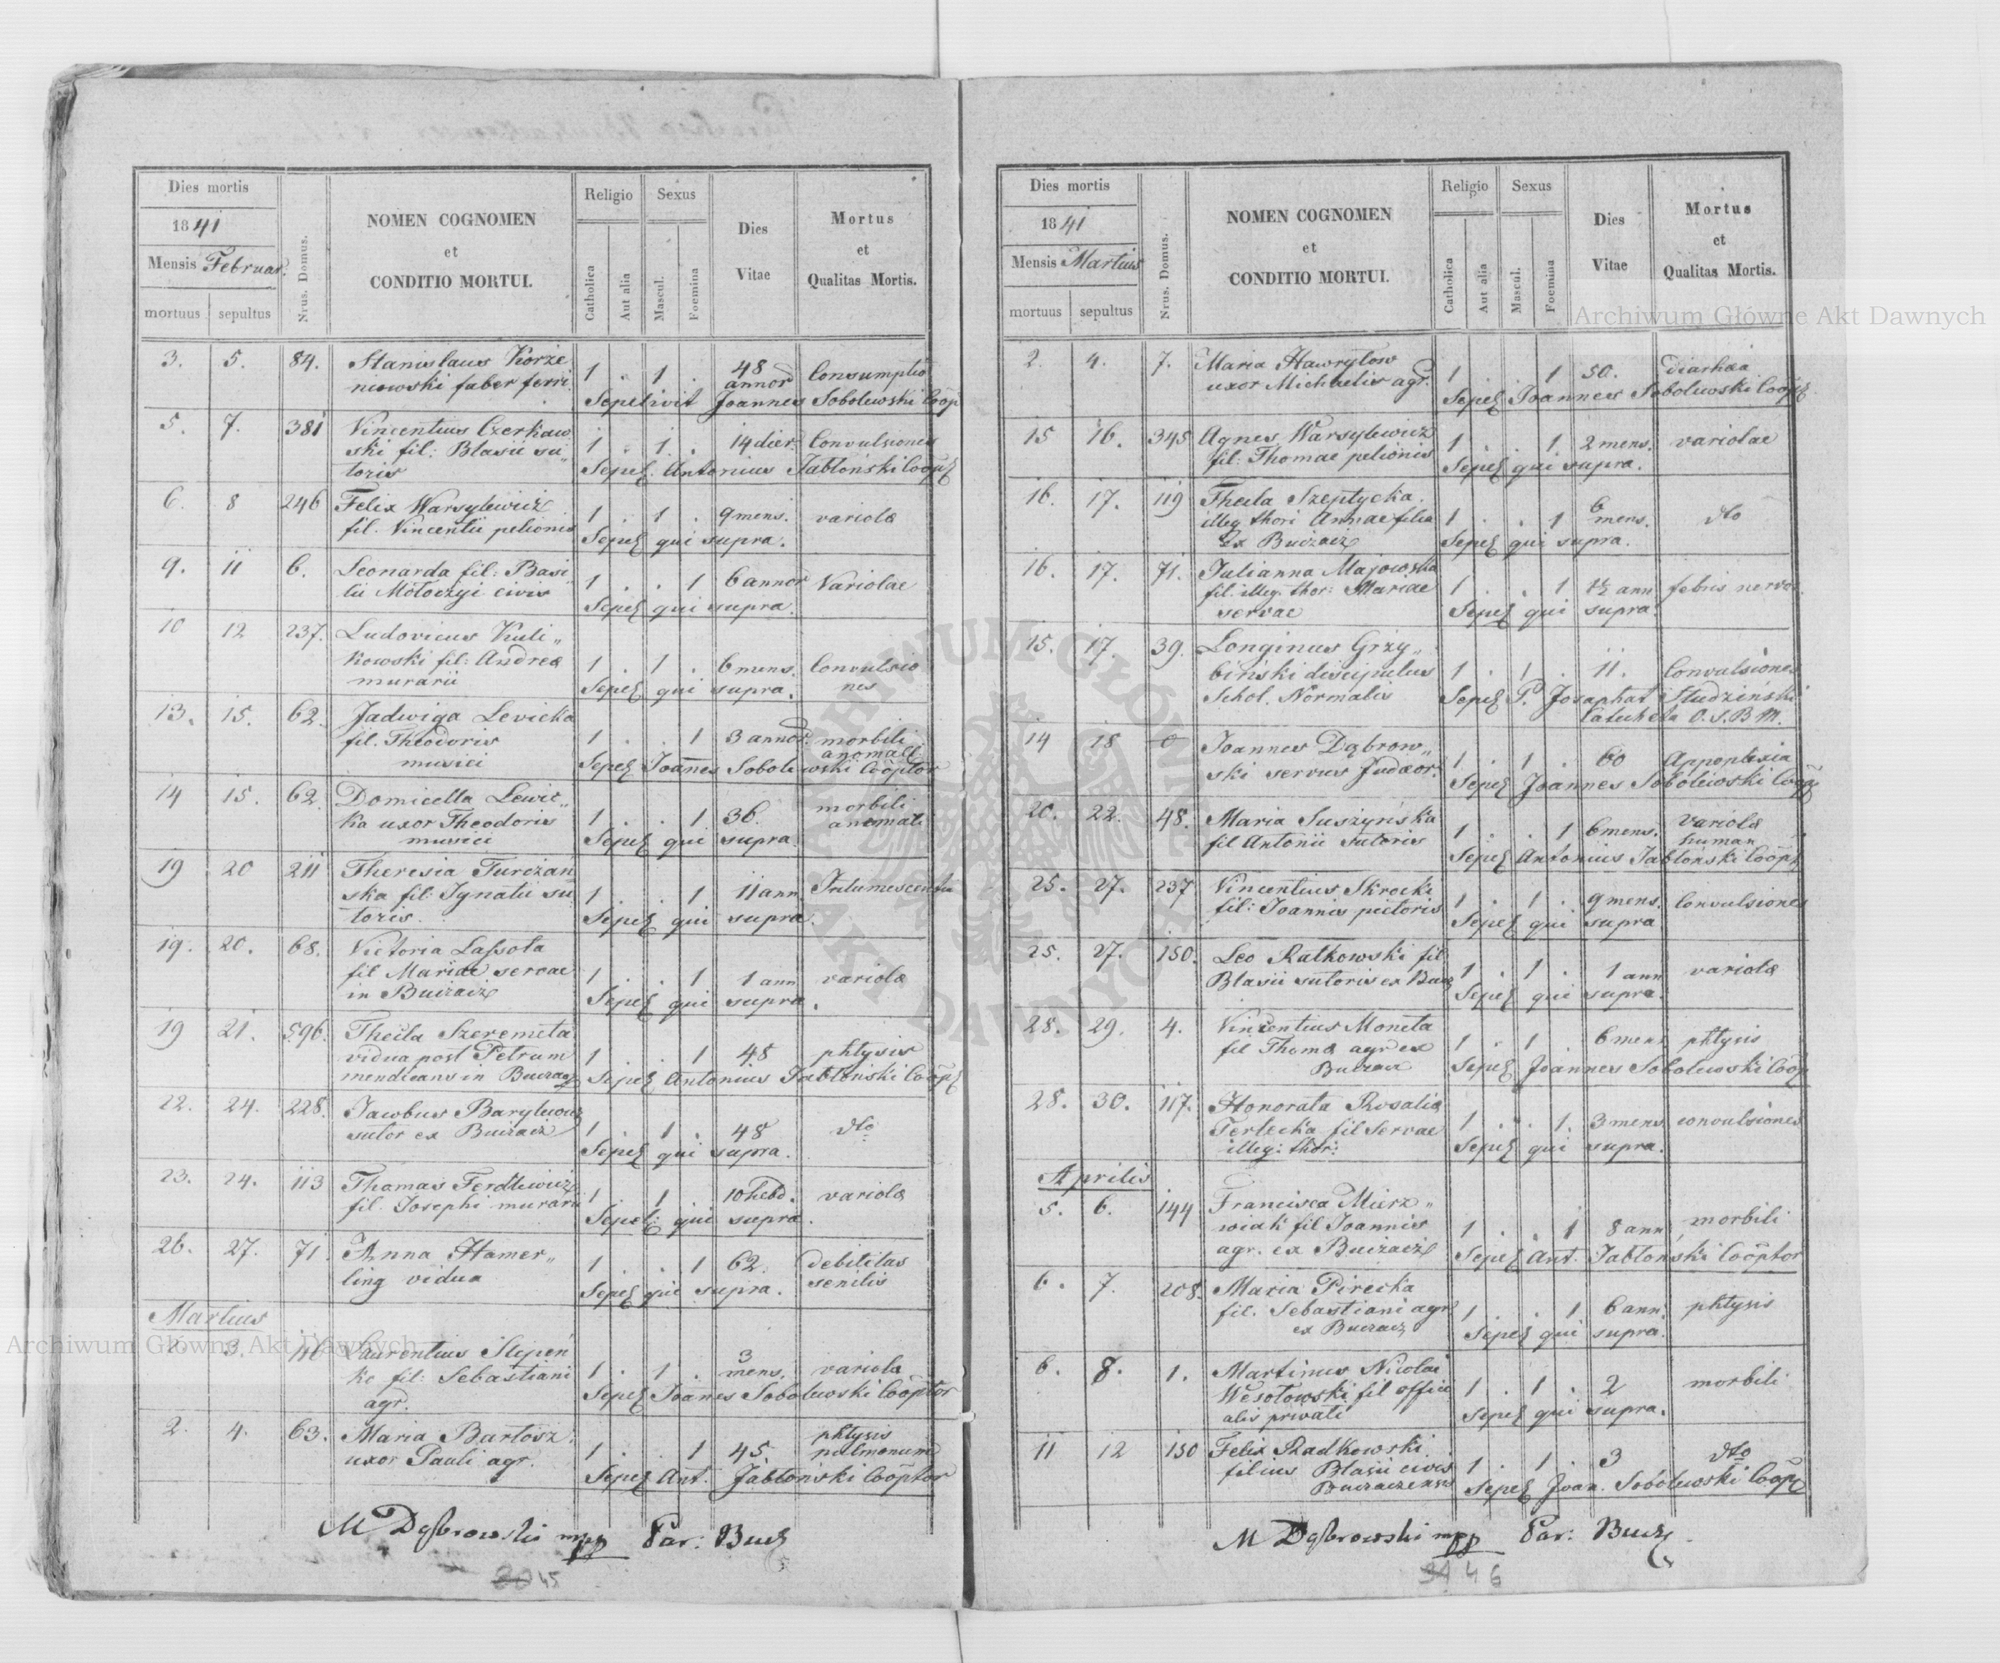 Dies mortis
1841
Mensis Februar.
mortuus sepultus
Nrus. Domus.
NOMEN COGNOMEN
et
CONDITIO MORTUI.
Religio
Catholica
Aut alia
Sexus
Mascul.
Foemina
Dies
Vitae
Mortus
et
Qualitas Mortis.
3. 5. 84. Stanislaus Korze
niowski faber ferri 1 . 1 . 48 annor Consumptio
Sepelivit Joannes Sobolewski Coop
5. 7. 381 Vincentius Czerkaw
ski fil: Blasii su„ 1 . 1 . 14 dier. Convulsiones
toris Sepel. Antonius Jabłoński Coop
6. 8 246 Felix Warsylewicz
fil. Vincentii pelionis 1 . 1 . 9 mens. variola
Sepel qui supra.
9. 11 6. Leonarda fil: Basi„
lii Mołoczyi civis 1 . . 1 6 annor Variolae
Sepel qui supra.
10 12 237. Ludovicus Kuli„
kowski fil: Andrea 1 . 1 . 6 mens. Convulsio
murarii Sepel qui supra. nes
13. 15. 62. Jadwiga Levicka
fil. Theodoris 1 . . 1 3 annor. morbili
musici anomali
Sepel Joanes Sobolewski Cooptor
14 15. 62. Domicella Lewic„
ka uxor Theodoris 1 . . 1 36. morbili
musici anomali
Sepel qui supra
19 20 211 Theresia Turczań
ska fil: Ignatii su 1 . . 1 11 ann Intumescentia
toris. Sepel qui supra.
19. 20. 68. Victoria Lassota
fil Mariae servae 1 . . 1 1 ann variola
in Buczacz Sepel qui supra.
19 21. 596. Thecla Szeremeta
vidua post Petrum 1 . . 1 48 phtysis
mendicans in Buczacz Sepel Antonius Jabłoński Coop
22. 24. 228. Jacobus Barylewicz
sutor ex Buczacz 1 . 1 . 48 dto
Sepel qui supra.
23. 24. 113 Thomas Ferdlewicz
fil. Josephi murarii 1 . 1 . 10 hebd. variola
Sepel: qui supra.
26. 27. 71. Anna Hamer„
ling vidua 1 . . 1 62. debilitas
Sepel qui supra. senilis
Martius
2. 3. 46 Laurentius Slepeń
ko fil: Sebastiani 1 . 1 . 3 mens. variola
agr. Sepel Joanes Sobolewski Cooptor
2. 4. 63. Maria Bartosz
uxor Pauli agr. 1 . . 1 45. phtysis
pulmonum
Sepel Ant. Jabłoński Cooptor
M Dąbrowski mpp Par: Bucz
30 45
Dies mortis
1841
Mensis Martius
mortuus sepultus
Nrus. Domus.
NOMEN COGNOMEN
et
CONDITIO MORTUI.
Religio
Catholica
Aut alia
Sexus
Mascul.
Foemina
Dies
Vitae
Mortus
et
Qualitas Mortis.
2. 4. 7. Maria Hawryłow
uxor Michaelis agr. 1 . . 1 50. diarhea
Sepel Joannes Sobolewski Coop
15 16. 345 Agnes Warsylewicz
fil: Thomae pelionis 1 . . 1 2 mens. variolae
Sepel qui supra.
16. 17. 119 Thecla Szeptycka.
illeg thori Annae filia 1 . . 1 6 mens. dto
ex Buczacz Sepel qui supra.
16. 17. 71. Julianna Majowska
fil. illeg. thor: Mariae 1 . . 1 1½ ann febris nervo.
servae Sepel qui supra.
15. 17. 39. Longinus Grzy„
biński discipulus 1 . 1 . 11. Convulsiones
Schol. Normalis Sepel P. Josaphat Studziński
Catecheta O.S.B.M.
14 18 0 Joannes Dąbrow„
ski servus Judaeor. 1 . 1 . 60 Appoplexia
Sepel Joannes Sobolewski Coop
20. 22. 48. Maria Suszyńska
fil Antonii Sutoris 1 . . 1 6 mens. variola
human
Sepel Antonius Jabłoński Coop
25. 27. 237 Vincentius Skrocki
fil: Joannis pictoris 1 . 1 . 9 mens. Convulsiones
Sepel qui supra
25. 27. 150. Leo Ratkowski fil
Blasii sutoris ex Bucz 1 . 1 . 1 ann variola
Sepel qui supra.
28. 29. 4. Vincentius Moneta
fil Thoma agr ex 1 . 1 . 6 mens phtysis
Buczacz Sepel Joannes Sobolewski Coop
28. 30. 117. Honorata Rosalia
Terlecka fil Servae 1 . . 1. 3 mens convulsiones
illeg: thor: Sepel qui supra.
Aprilis
5. 6. 144 Francisca Murz„
wiak fil Joannis 1 . . 1 8 ann, morbili
agr. ex Buczacz Sepel Ant. Jabłoński Cooptor
6. 7. 208. Maria Pirecka
fil. Sebastiani agr 1 . . 1 6 ann phtysis
ex Buczacz Sepel qui supra.
6. 8. 1. Martinus Nicolai
Wesołowski fil offici 1 . 1 . 2 morbili
alis privati Sepel qui supra.
11 12 150 Felix Radkowski
filius Blasii civis 1 . 1 . 3 dto
Buczaczensis Sepel Joan. Sobolewski Coop
M Dąbrowski mpp Par: Bucz
31 46
Archiwum Główne Akt Dawnych
Archiwum Główne Akt Dawnych
ARCHIWUM GŁÓWNE
AKT DAWNYCH